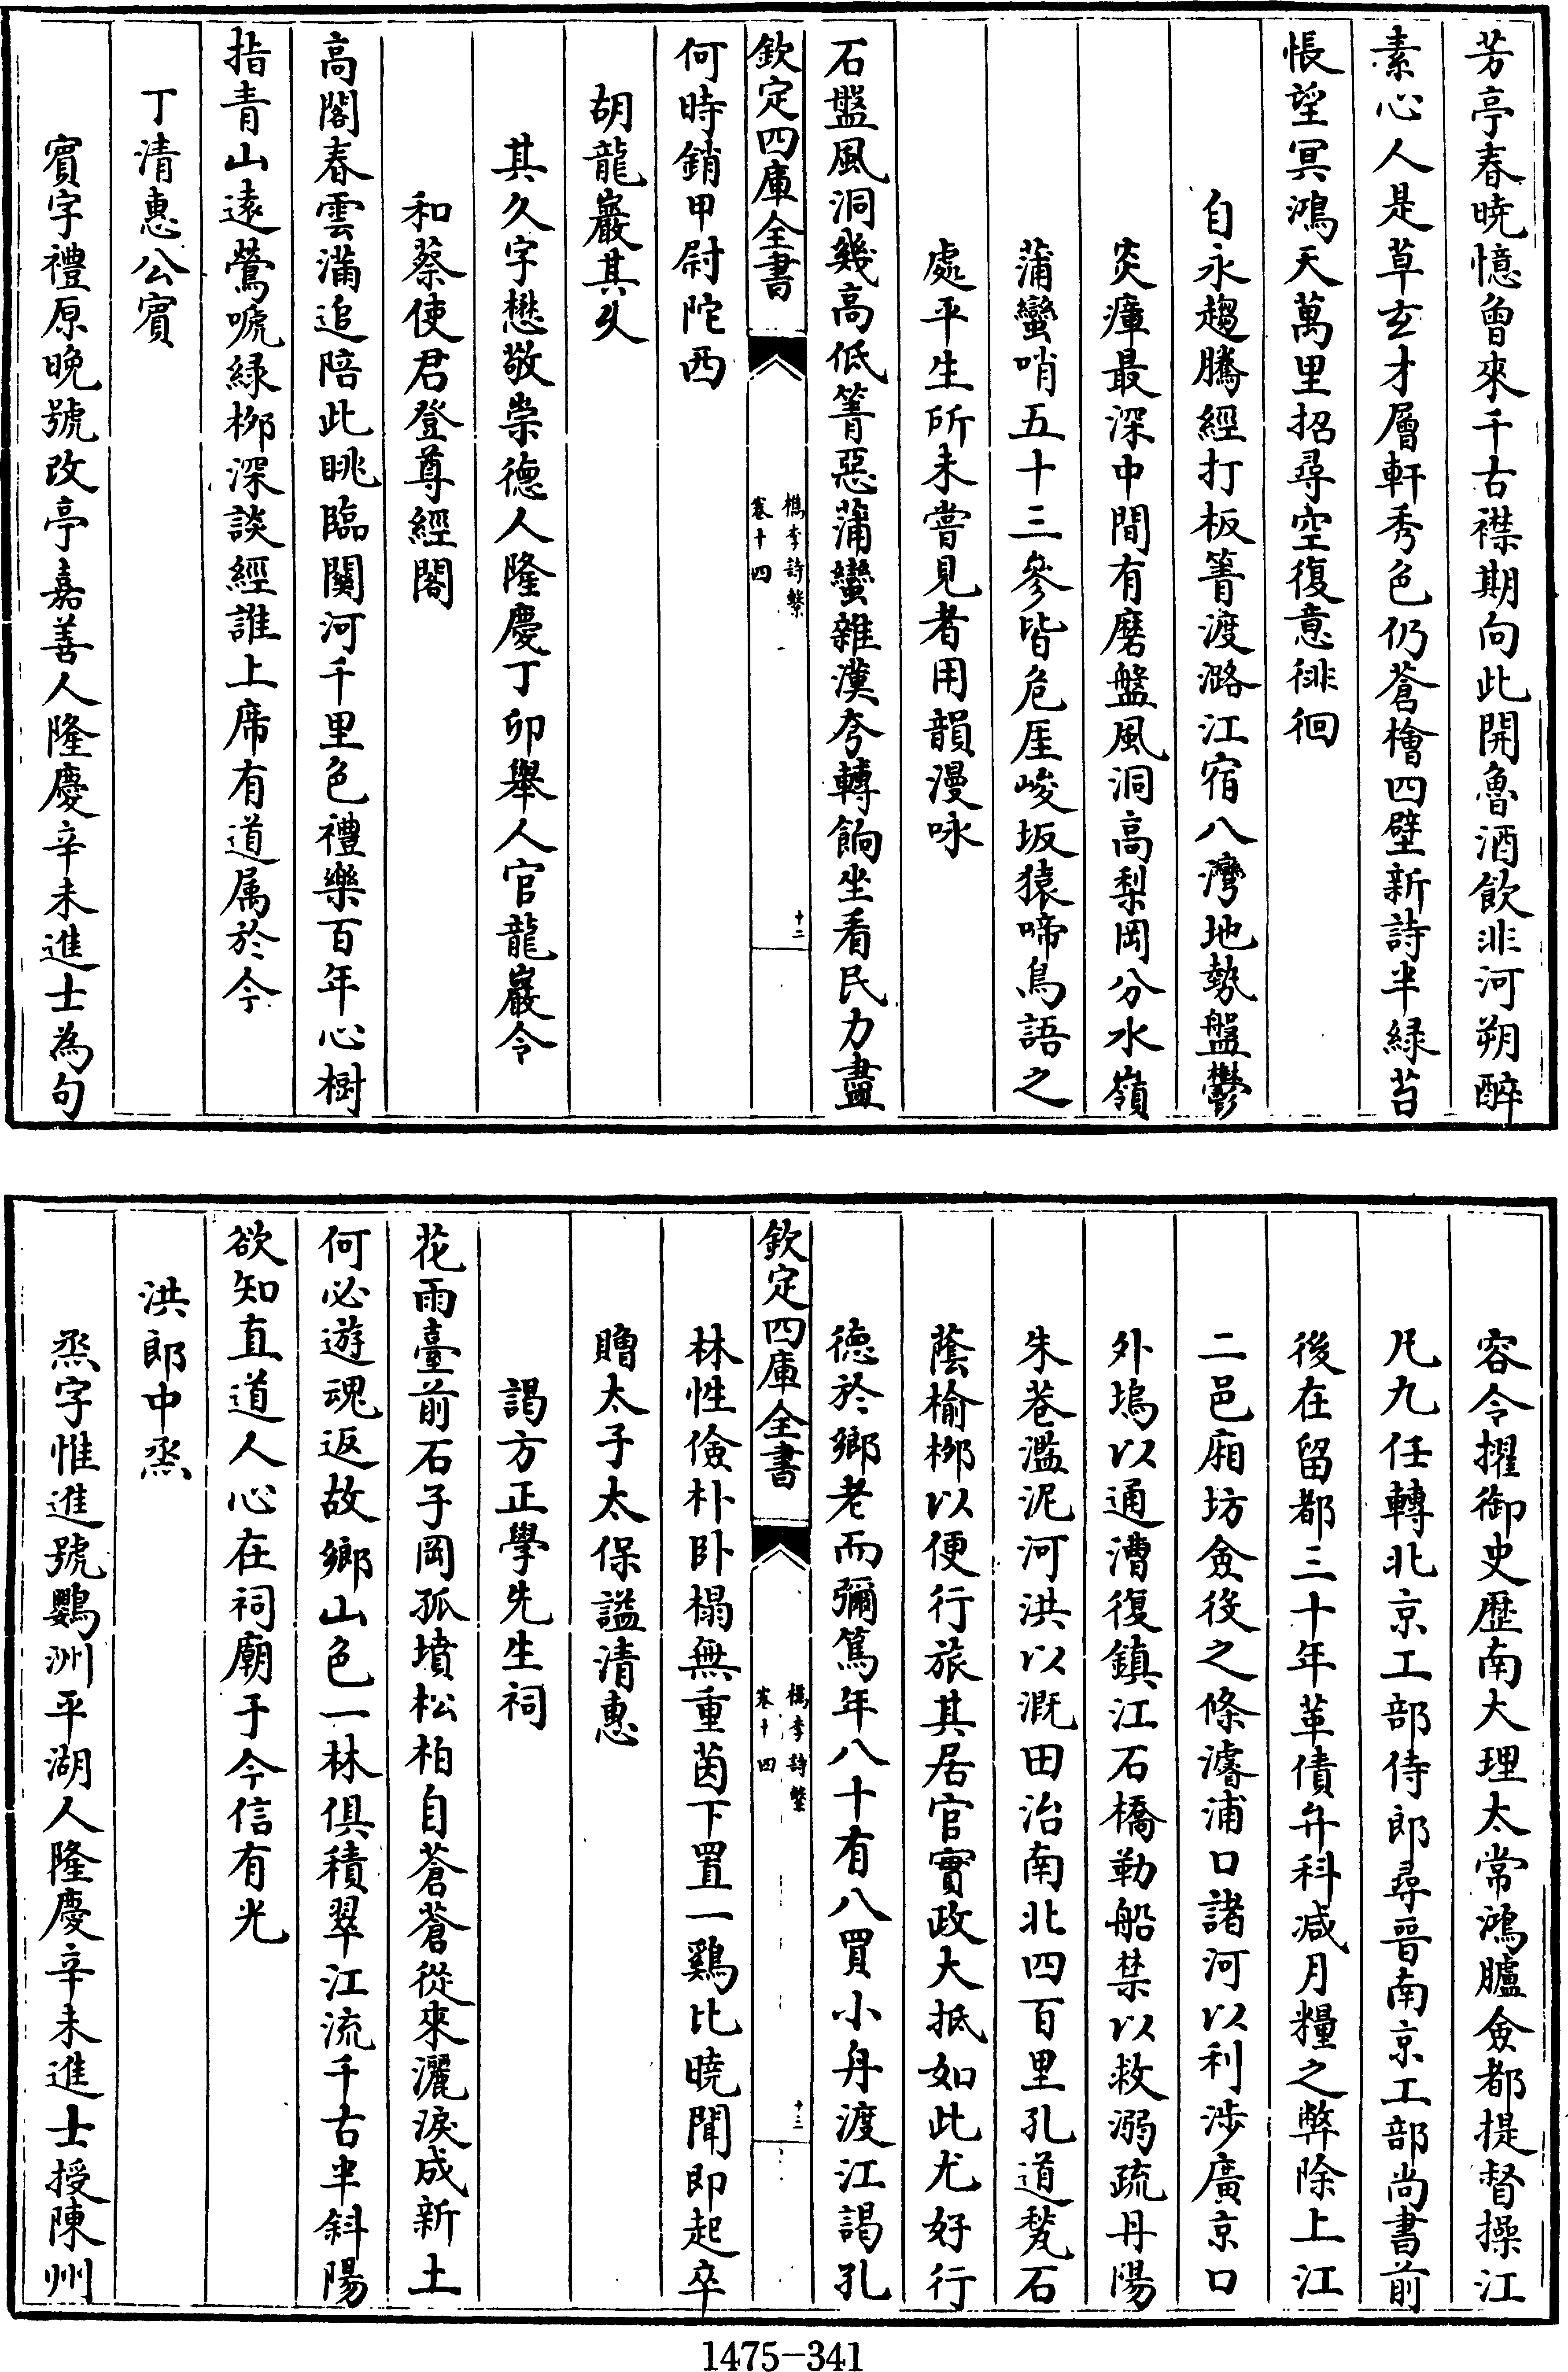 芳亭春曉憶曾來千古襟期向此開魯酒飲非河朔醉
素心人是草𤣥才層軒秀色仍蒼檜四壁新詩半緑苔
悵望冥鴻天萬里招尋空復意徘徊
自永趨騰經打板箐渡潞江宿八灣地勢盤鬱
炎瘴最深中間有磨盤風洞高梨岡分水嶺
蒲蠻哨五十三參皆危厓峻坂猿啼鳥語之
處平生所未嘗見者用韻漫咏
石盤風洞幾高低箐惡蒲蠻雜漢夸轉餉坐看民力盡
欽定四庫全書
檇李詩繫
卷十四
十二
何時銷甲尉陀西
胡龍巖其久
其久字懋敬崇德人隆慶丁卯舉人官龍巖令
和蔡使君登尊經閣
高閣春雲滿追陪此眺臨關河千里色禮樂百年心樹
指青山遠鶯嗁緑栁深談經誰上席有道属於今
丁清惠公賔
賔字禮原晚號改亭嘉善人隆慶辛未進士為句
容令擢御史歴南大理太常鴻臚僉都提督操江
凡九任轉北京工部侍郎尋晉南京工部尚書前
後在留都三十年革債弁科減月糧之弊除上江
二邑廂坊僉役之條濬浦口諸河以利涉廣京口
外塢以通漕復鎮江石橋勒船禁以救溺疏丹陽
朱巷濫泥河洪以溉田治南北四百里孔道甃石
蔭榆栁以便行旅其居官實政大抵如此尤好行
徳於鄉老而彌篤年八十有八買小舟渡江謁孔
欽定四庫全書
檇李詩繫
卷十四
十三
林性儉朴卧榻無重茵下置一鷄比曉聞即起卒
贈太子太保諡清惠
謁方正學先生祠
花雨臺前石子岡孤墳松柏自蒼蒼從來灑淚成新土
何必遊魂返故鄉山色一林俱積翠江流千古半斜陽
欲知直道人心在祠廟于今信有光
洪郎中烝
烝字惟進號鸚洲平湖人隆慶辛未進士授陳州
1475-341